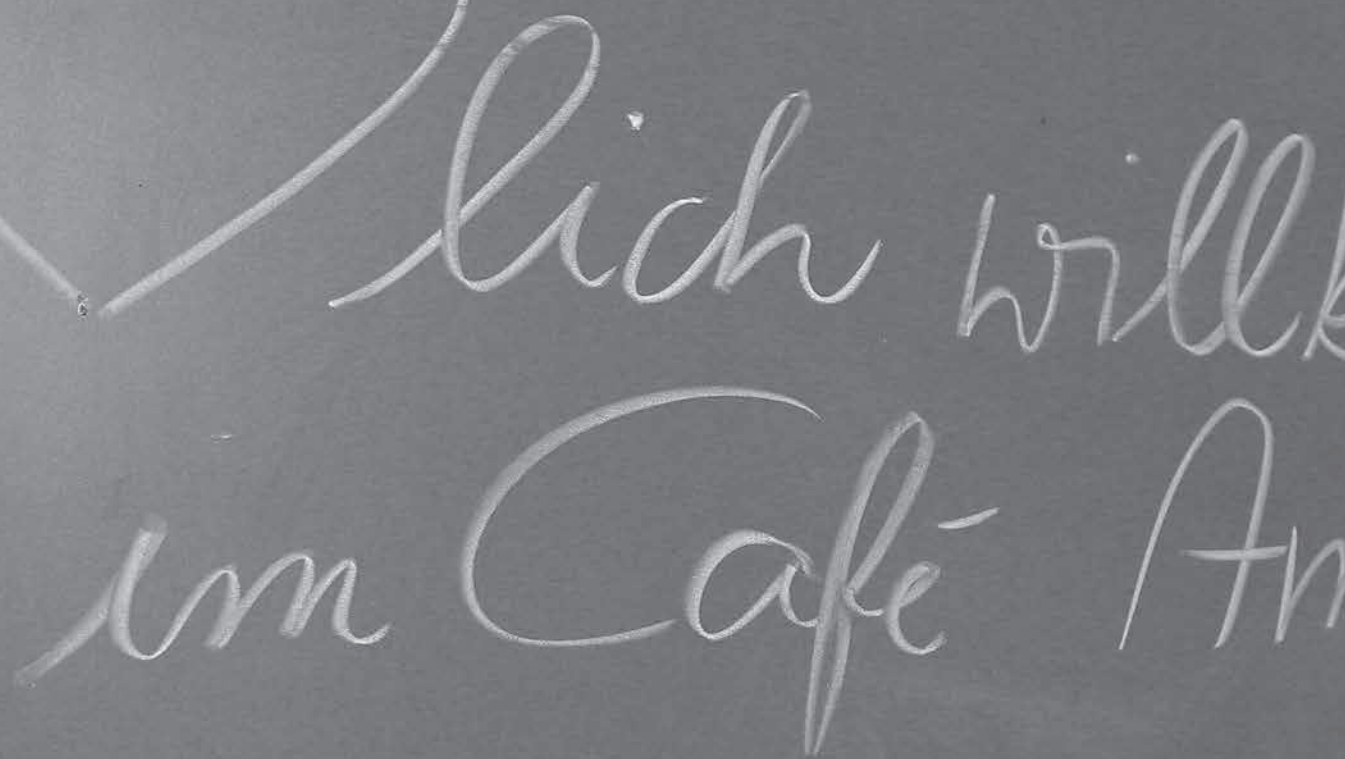 lich willk
im Café An